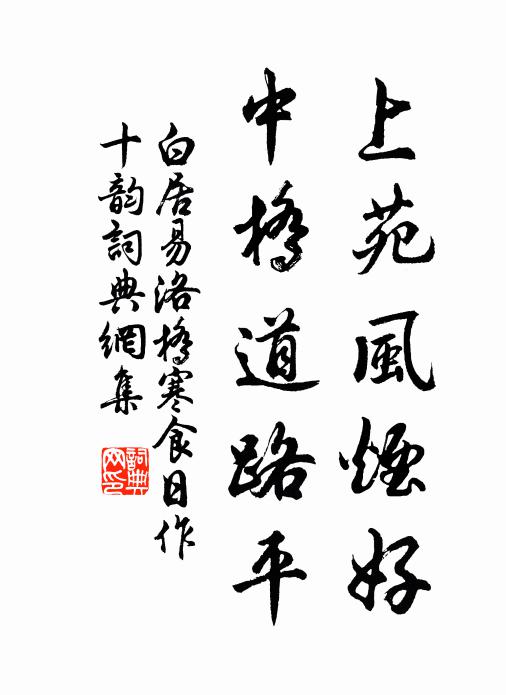 上苑風煙好
中橋道路平
白居易洛橋寒食日作
十韵詞典網集
詞典
网印